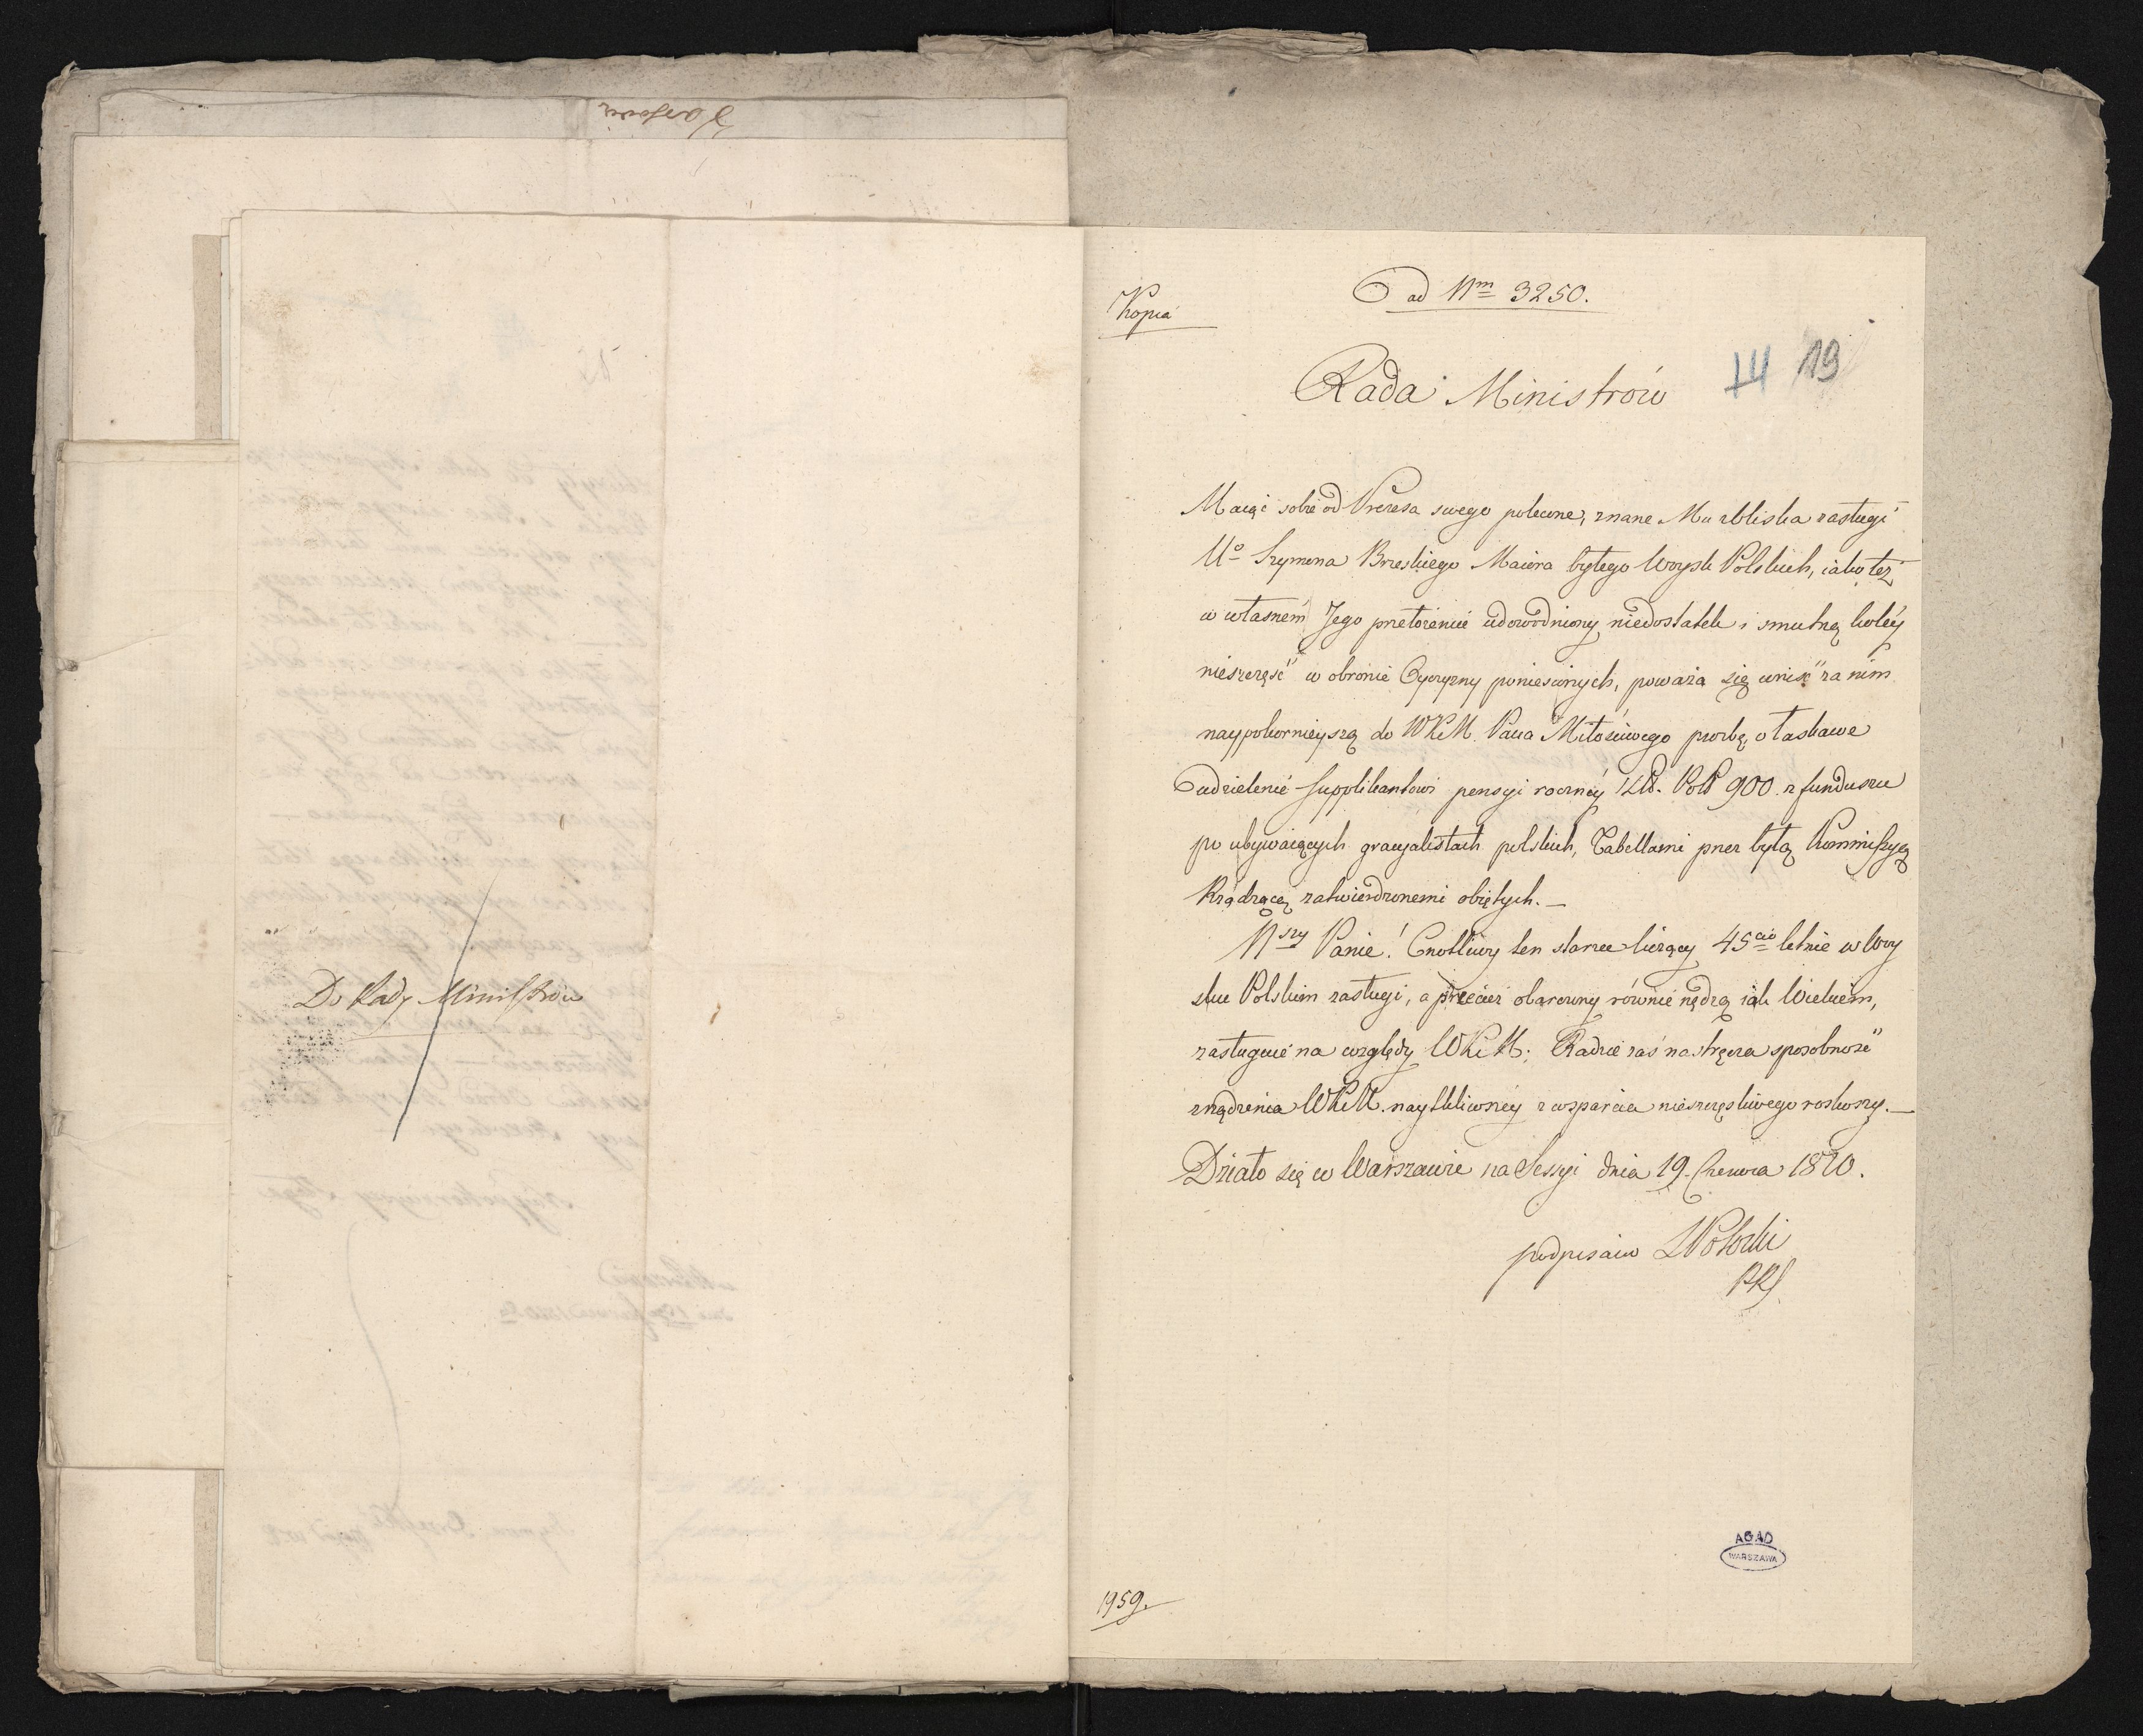 Do Rady Ministrów
Kopia
ad Nm 3250.
14 19
Rada Ministrów
Maiąc sobie od Prezesa swego polecone, znane Mu zbliska zasługi
Uo Szymona Brzeskiego Maiora byłego Woysk Polskich, iako też
w własném Jego przełożenie udowodniony niedostatek i smutną koléy
nieszczęść w obronie Oyczyzny poniesionych, poważa się wnieść za nim
naypokornieyszą do WKM. Pana Miłościwego prozbę, o łaskawe
udzielenie Supplikantowi pensyi roczney Zł. Pol 900. z funduszu
po ubywaiących gracyalistach polskich, Tabellami przez byłą Kommissyą
Rządzącą zatwierdzonemi obiętych. —
Nszy Panie! Cnotliwy ten starzec liczący 45cio letnie w Woy
sku Polskim zasługi, a przecież obarczony równie nędzą iak Wiekiem,
zasługuie na względy WKM; Radzie zaś nastręcza sposobność
zrządzenia WKM. naytkliwszey z wsparcia nieszczęśliwego roskoszy. —
Działo się w Warszawie na Sessyi dnia 19. Czerwca 1810.
podpisano SPotocki
PRS
AGAD
WARSZAWA
1959.